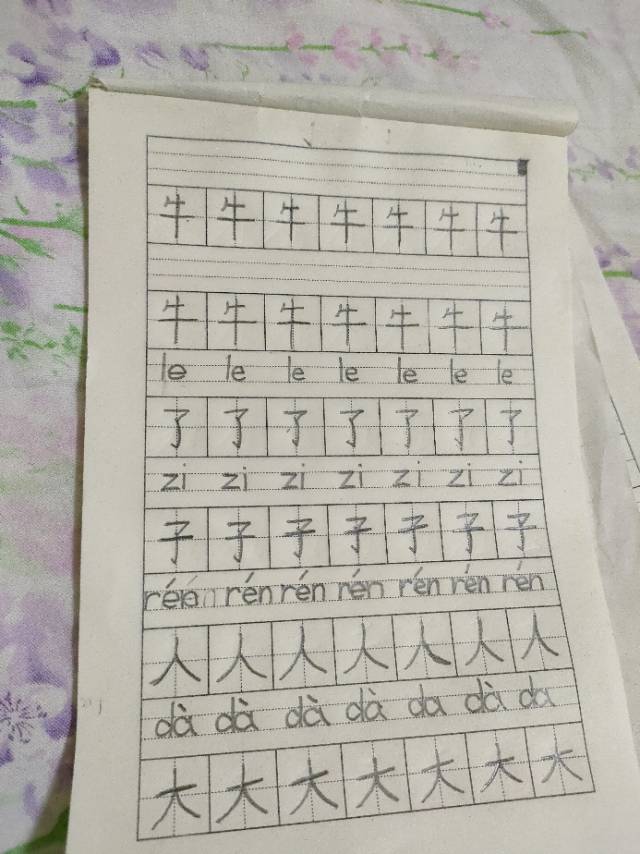 牛 牛 牛 牛 牛 牛 牛
牛 牛 牛 牛 牛 牛 牛
le le le le le le le
了 了 了 了 了 了 了
zi zi zi zi zi zi zi
子 子 子 子 子 子 子
rén rén rén rén rén rén
人 人 人 人 人 人 人
dà dà dà dà da dà da
大 大 大 大 大 大 大